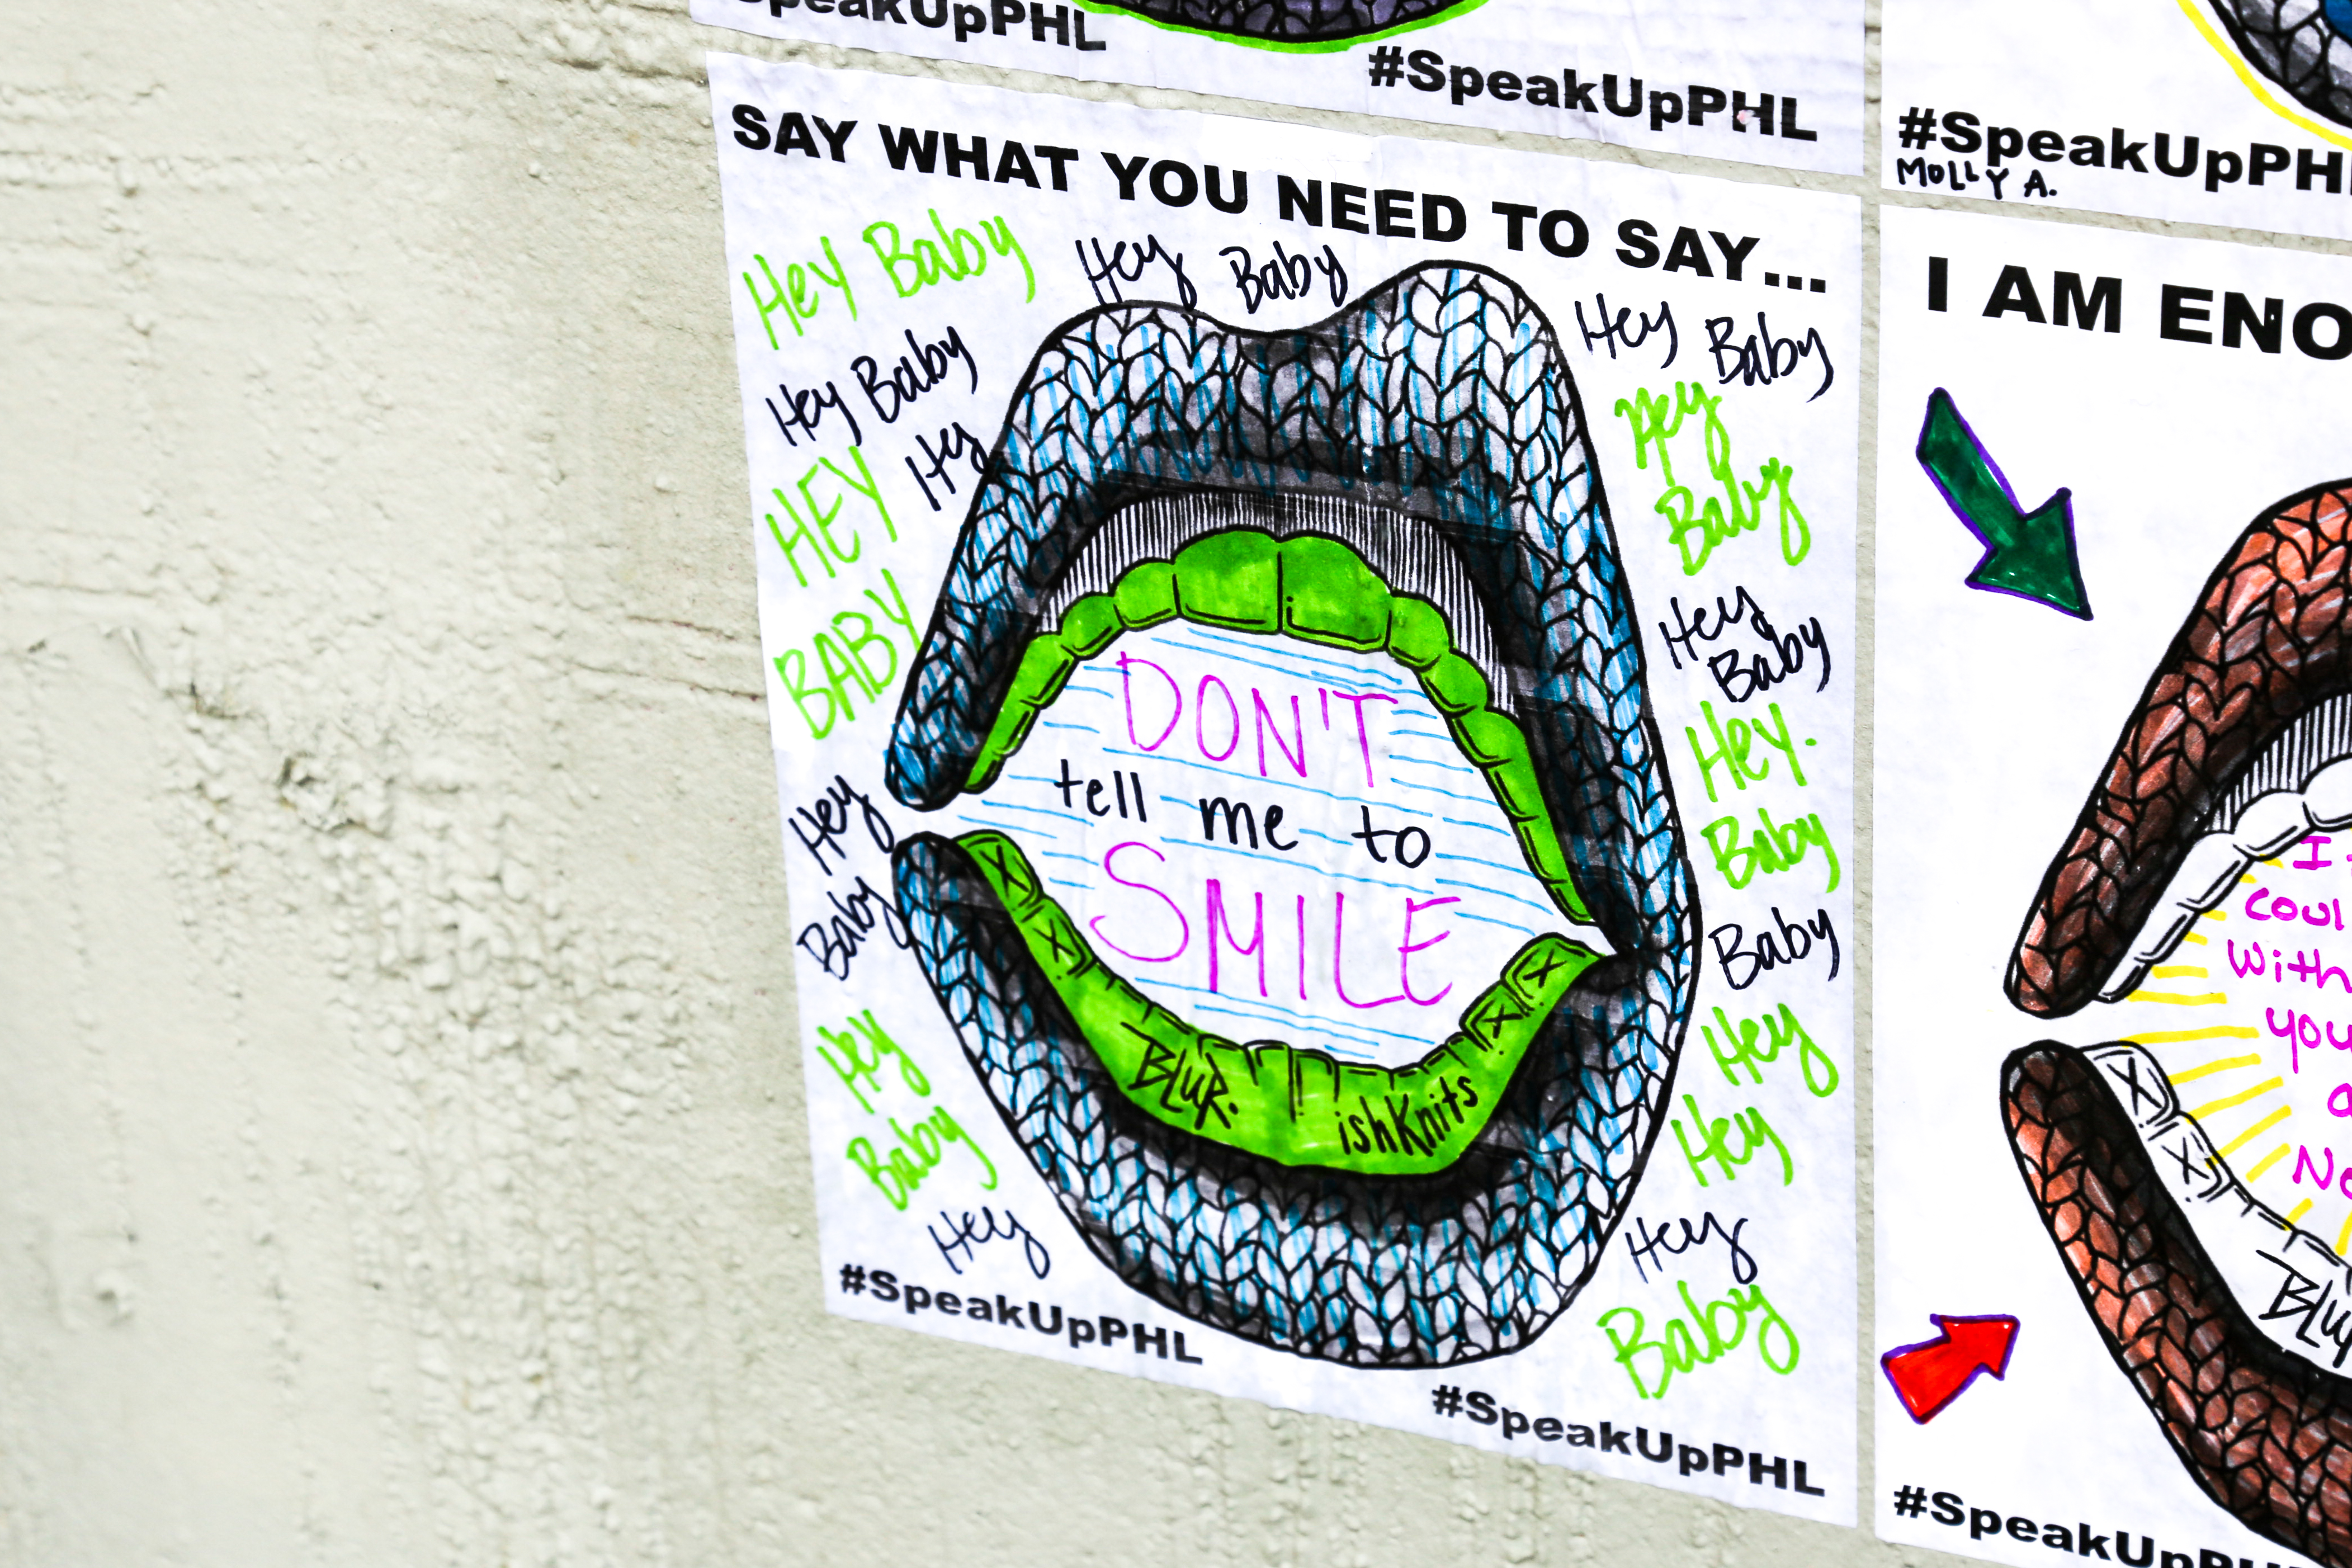 #SpeakUpPHL
#SpeakUpPHL
#SpeakUpPHL
MOLLY A.
SAY WHAT YOU NEED TO SAY...
Hey Baby
Hey Baby
Hey Baby
Hey Baby
Hey
HEY
BABY
Hey
Baby
Hey
Baby
Hey
Hey
Baby
Hey
Baby
Hey
Baby
Baby
Hey
Hey
Hey
Baby
DON'T
tell me to
SMILE
BLUR.
ishKnits
#SpeakUpPHL
#SpeakUpPHL
I AM
you
BLUR
#SpeakUpPHL